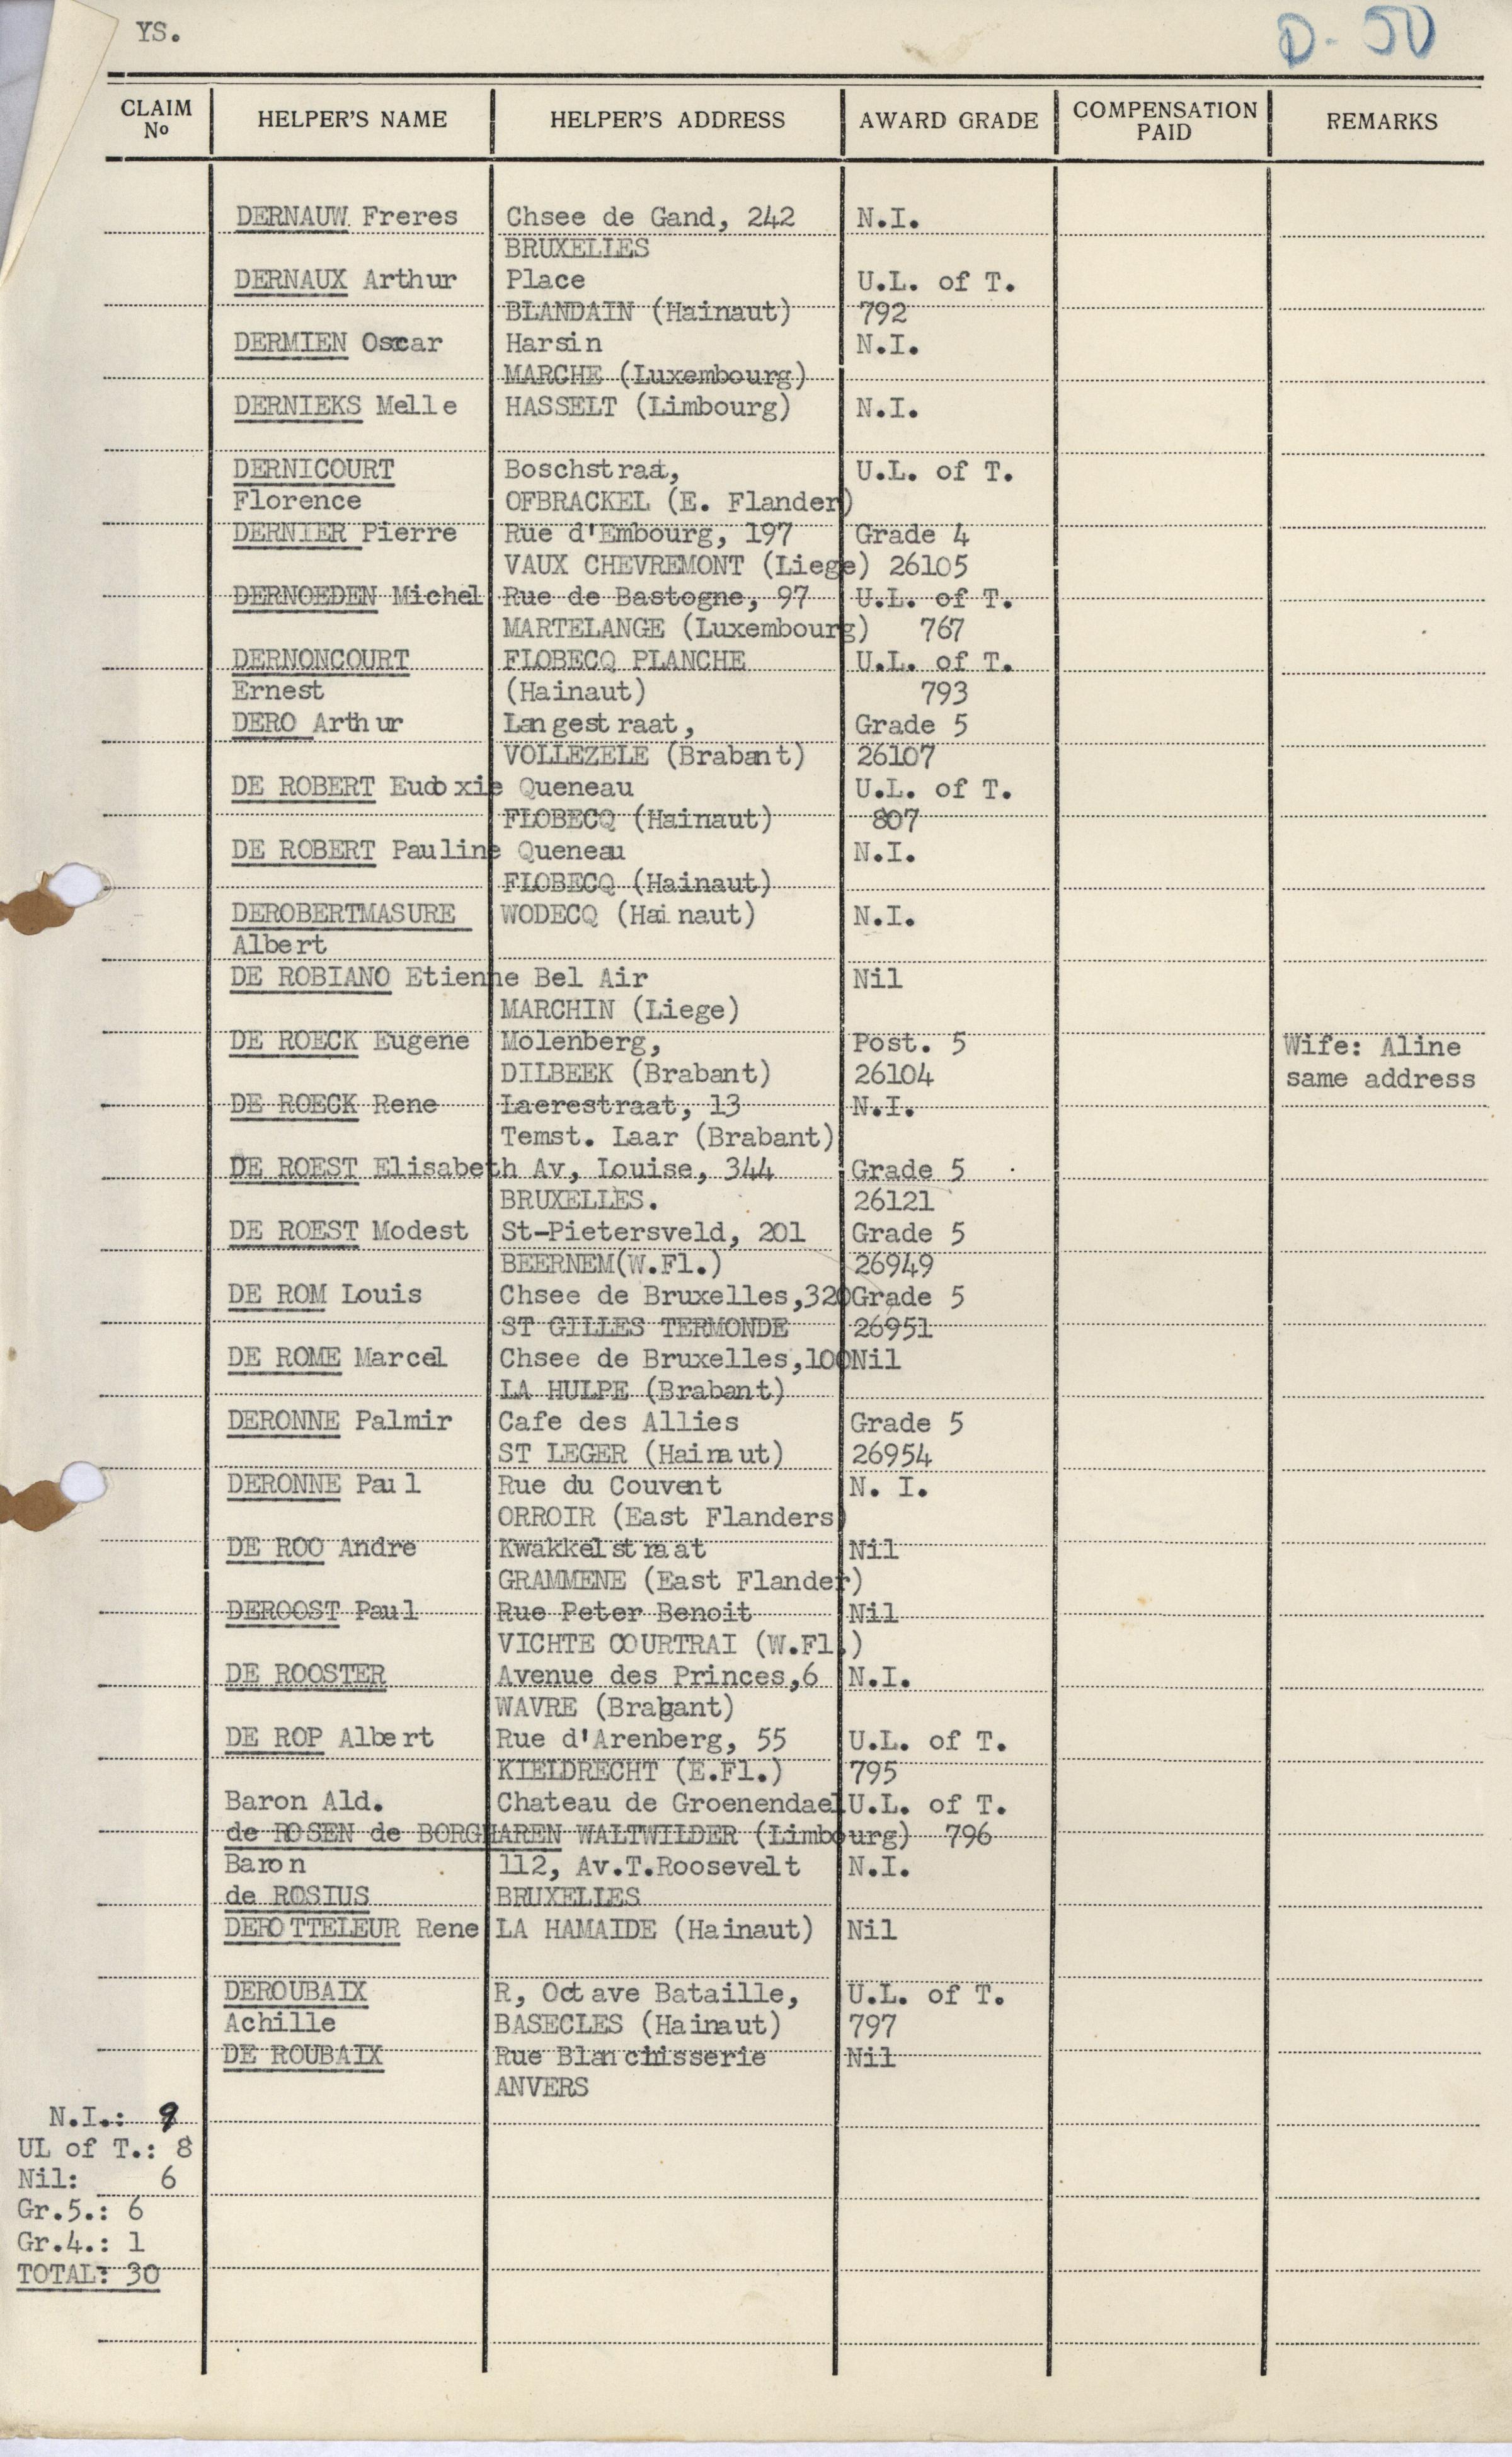 YS.
D-50
CLAIM No HELPER'S NAME HELPER'S ADDRESS AWARD GRADE COMPENSATION PAID REMARKS
DERNAUW Freres Chsee de Gand, 242 N.I.
BRUXELLES
DERNAUX Arthur Place U.L. of T.
BLANDAIN (Hainaut) 792
DERMIEN Oscar Harsin N.I.
MARCHE (Luxembourg)
DERNIEKS Melle HASSELT (Limbourg) N.I.
DERNICOURT Boschstraat, U.L. of T.
Florence OFBRACKEL (E. Flander)
DERNIER Pierre Rue d'Embourg, 197 Grade 4
VAUX CHEVREMONT (Liege) 26105
DERNOEDEN Michel Rue de Bastogne, 97 U.L. of T.
MARTELANGE (Luxembourg) 767
DERNONCOURT FLOBECQ PLANCHE U.L. of T.
Ernest (Hainaut) 793
DERO Arthur Langestraat, Grade 5
VOLLEZELE (Brabant) 26107
DE ROBERT Eudoxie Queneau U.L. of T.
FLOBECQ (Hainaut) 807
DE ROBERT Pauline Queneau N.I.
FLOBECQ (Hainaut)
DEROBERTMASURE WODECQ (Hainaut) N.I.
Albert
DE ROBIANO Etienne Bel Air Nil
MARCHIN (Liege)
DE ROECK Eugene Molenberg, Post. 5 Wife: Aline
DILBEEK (Brabant) 26104 same address
DE ROECK Rene Laerestraat, 13 N.I.
Temst. Laar (Brabant)
DE ROEST Elisabeth Av, Louise, 344 Grade 5
BRUXELLES. 26121
DE ROEST Modest St-Pietersveld, 201 Grade 5
BEERNEM(W.Fl.) 26949
DE ROM Louis Chsee de Bruxelles,320 Grade 5
ST GILLES TERMONDE 26951
DE ROME Marcel Chsee de Bruxelles,100 Nil
LA HULPE (Brabant)
DERONNE Palmir Cafe des Allies Grade 5
ST LEGER (Hainaut) 26954
DERONNE Paul Rue du Couvent N. I.
ORROIR (East Flanders)
DE ROO Andre Kwakkelstraat Nil
GRAMMENE (East Flander)
DEROOST Paul Rue Peter Benoit Nil
VICHTE COURTRAI (W.Fl.)
DE ROOSTER Avenue des Princes,6 N.I.
WAVRE (Brabant)
DE ROP Albert Rue d'Arenberg, 55 U.L. of T.
KIELDRECHT (E.Fl.) 795
Baron Ald. Chateau de Groenendael U.L. of T.
de ROSEN de BORGHAREN WALTWILDER (Limbourg) 796
Baron 112, Av.T.Roosevelt N.I.
de ROSIUS BRUXELLES
DEROTTELEUR Rene LA HAMAIDE (Hainaut) Nil
DEROUBAIX R, Octave Bataille, U.L. of T.
Achille BASECLES (Hainaut) 797
DE ROUBAIX Rue Blanchisserie Nil
ANVERS
N.I.: 9
UL of T.: 8
Nil: 6
Gr.5.: 6
Gr.4.: 1
TOTAL: 30